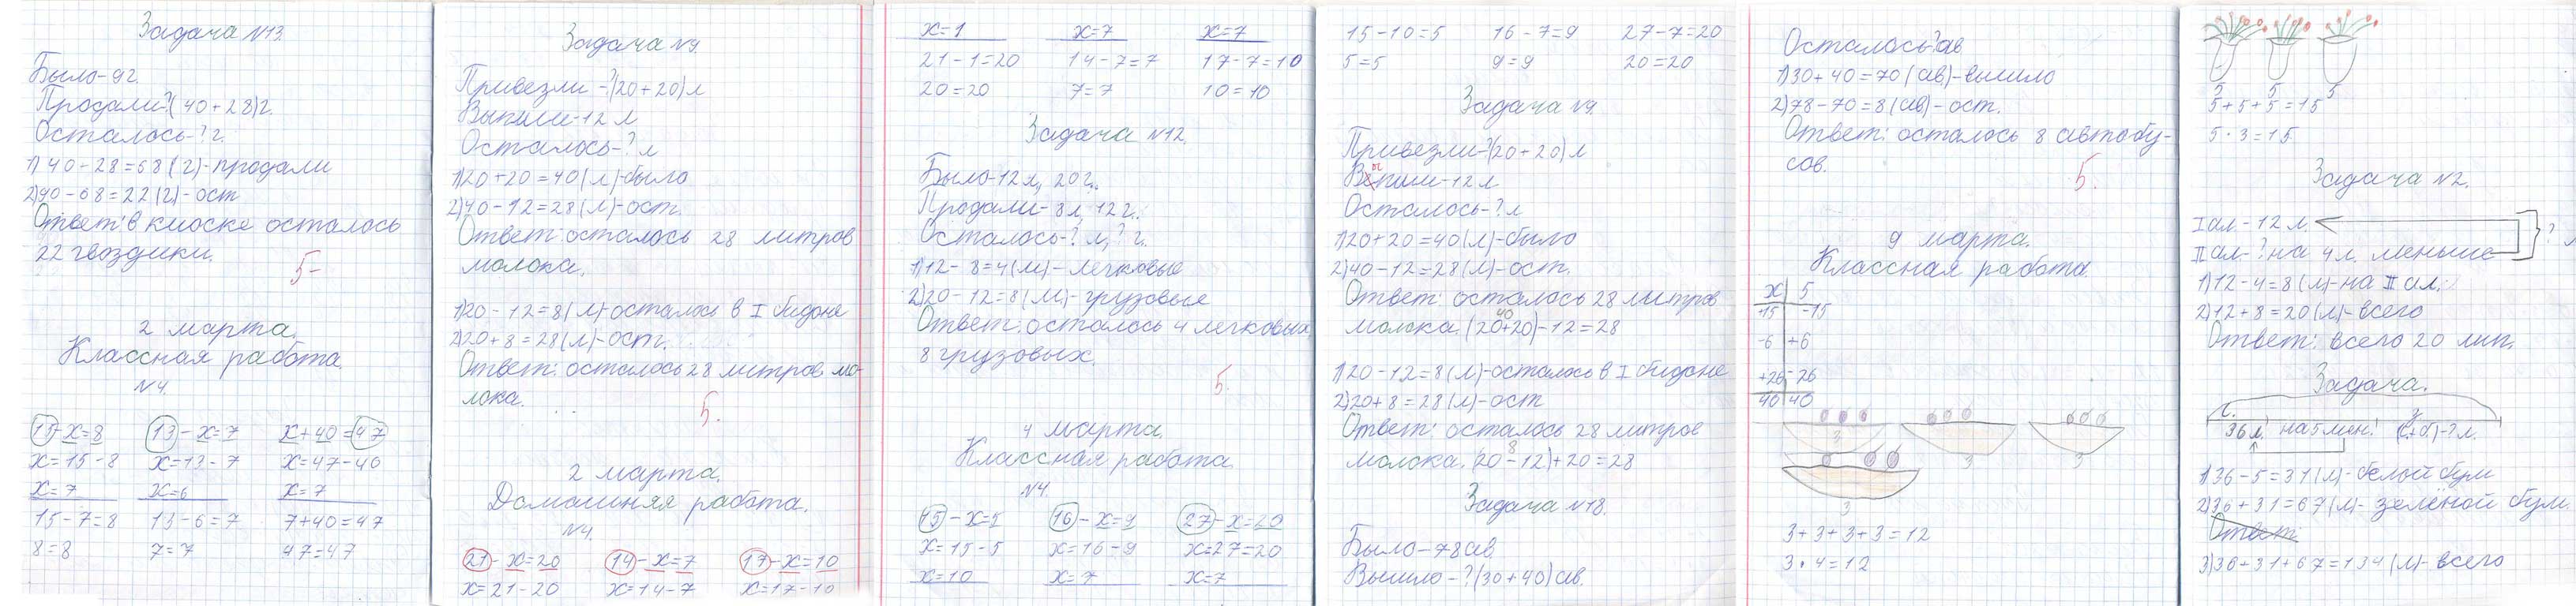 Задача №13.
Было-92.
Продали-?(40+28)г.
Осталось-?г.
1)40-28=68(г)-продали
2)90-68=22(г)-ост
Ответ: в киоске осталось
22 гвоздики.
5-
2 марта.
Классная работа.
№4.
15-х=8 13-х=7 х+40=47
х=15-8 х=13-7 х=47-40
х=7 х=6 х=7
15-7=8 13-6=7 7+40=47
8=8 7=7 47=47
Задача №9.
Привезли-?(20+20)л
Выпили-12л
Осталось-?л
1)20+20=40(л)-было
2)40-12=28(л)-ост.
Ответ: осталось 28 литров
молока.
1)20-12=8(л)-осталось в I бидоне
2)20+8=28(л)-ост.
Ответ: осталось 28 литров мо-
лока.
5.
2 марта.
Домашняя работа.
№4.
21-х=20 14-х=7 17-х=10
х=21-20 х=14-7 х=17-10
х=1 х=7 х=7
21-1=20 14-7=7 17-7=10
20=20 7=7 10=10
Задача №12.
Было-12л, 20г.
Продали-8л, 12г.
Осталось-?л,?г.
1)12-8=4(м)-легковые
2)20-12=8(м)-грузовые
Ответ: осталось 4 легковых
8 грузовых.
5.
4 марта.
Классная работа.
№4.
15-х=5 16-х=9 27-х=20
х=15-5 х=16-9 х=27=20
х=10 х=7 х=7
15-10=5 16-7=9 27-7=20
5=5 9=9 20=20
Задача №9.
Привезли-?(20+20)л
Выпили-12л
Осталось-?л
1)20+20=40(л)-было
2)40-12=28(л)-ост.
Ответ: осталось 28 литров
40
молока. (20+20)-12=28
1)20-12=8(л)-осталось в I бидоне
2)20+8=28(л)-ост
Ответ: осталось 28 литров
8
молока. (20-12)+20=28
Задача №18.
Было-78ав
Вышло-?(30+40)ав.
Осталось-?ав
1)30+40=70(ав)-вышло
2)78-70=8(ав)-ост.
Ответ: осталось 8 автобу-
сов.
5.
9 марта.
Классная работа.
х 5
+15 -15
-6 +6
+26 -26
40 40
3 3 3
3
3+3+3+3=12
3·4=12
5 5 5
5+5+5=15
5·3=15
Задача №2.
I ал-12л.
II ал-?на 4л. меньше
?
1)12-4=8(л)-на II ал.
2)12+8=20(л)-всего
Ответ: всего 20 лип.
Задача.
36л. на 5 мен.
1)36-5=31(л)-белой бум
2)36+31=67(л)-зелёной бум.
Ответ:
3)36+31+67=134(л)-всего